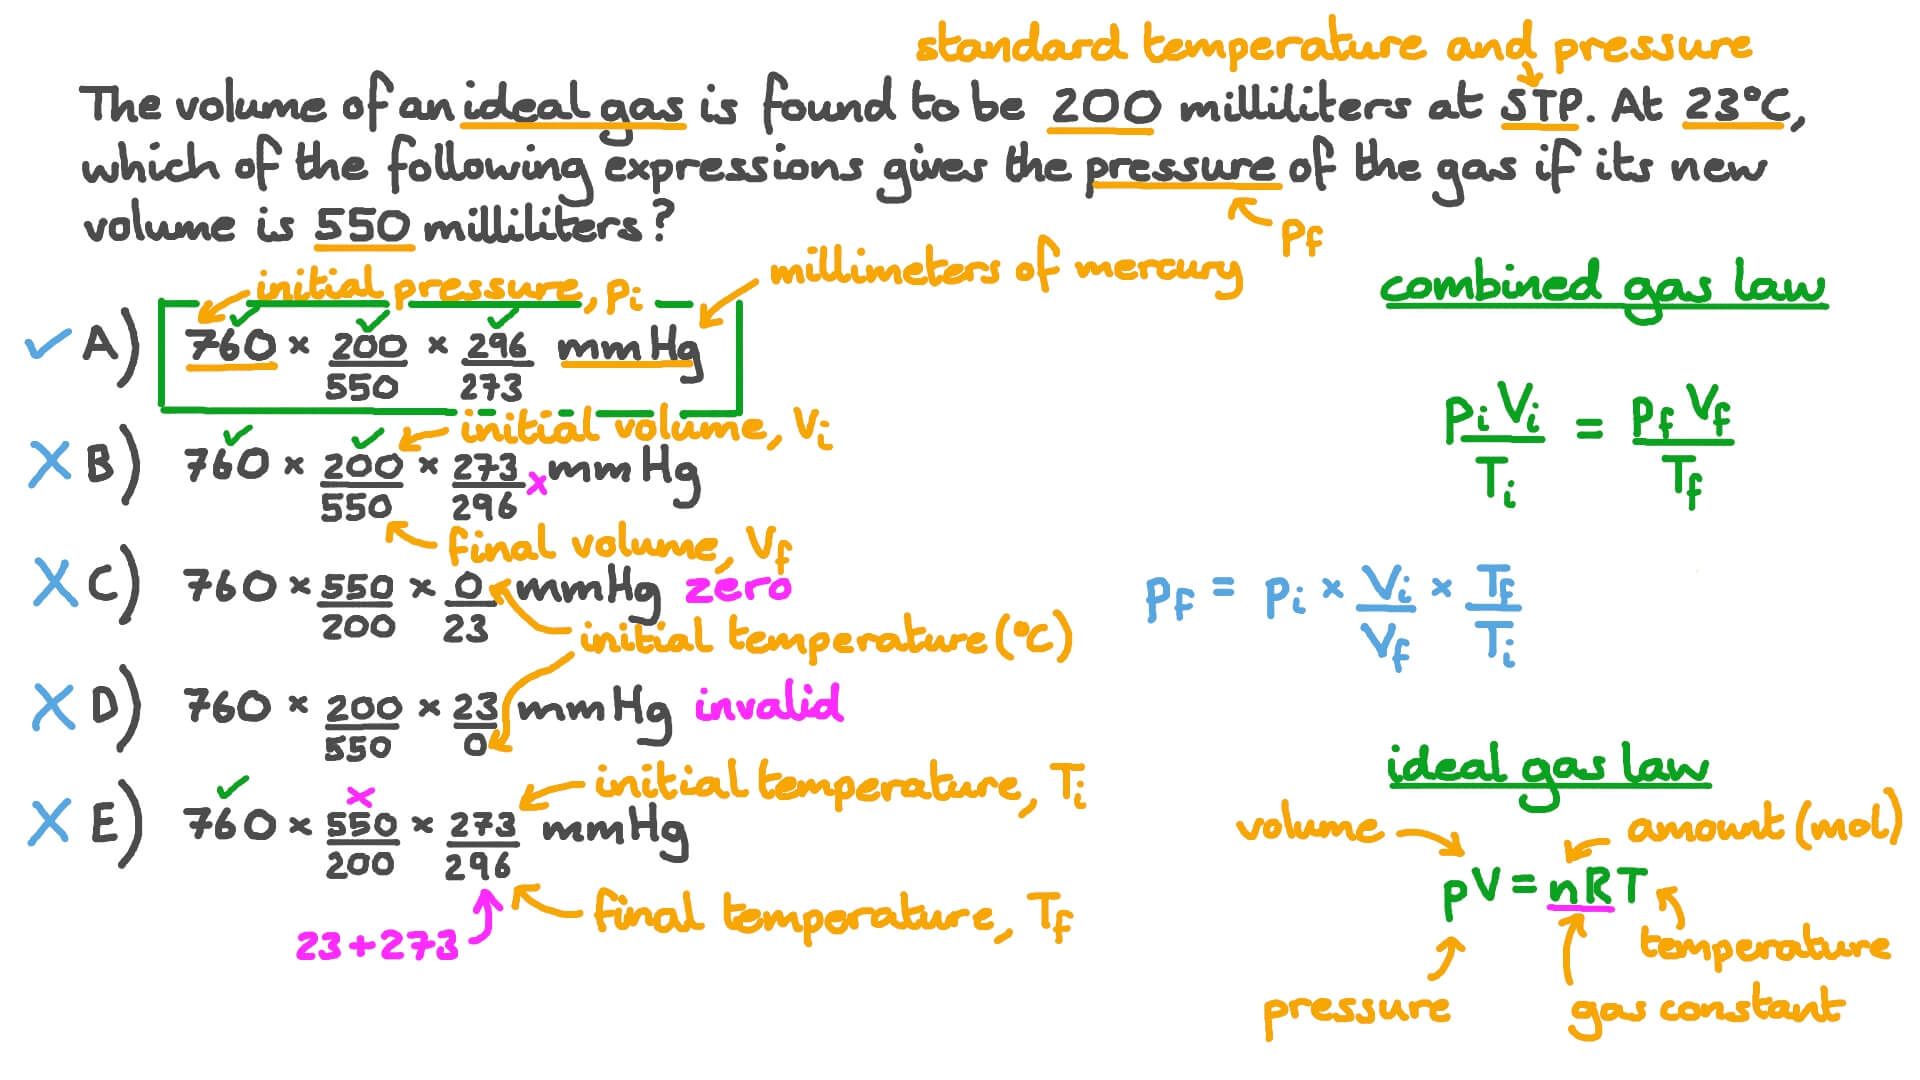 standard temperature and pressure
The volume of an ideal gas is found to be 200 milliliters at STP. At 23°C,
which of the following expressions gives the pressure of the gas if its new
volume is 550 milliliters?
pf
initial pressure, pi
millimeters of mercury
A) 760 × 200/550 × 296/273 mmHg
initial volume, Vi
B) 760 × 200/550 × 273/296 mmHg
final volume, Vf
C) 760 × 550/200 × 0/23 mmHg zero
initial temperature (°C)
D) 760 × 200/550 × 23/0 mmHg invalid
initial temperature, Ti
E) 760 × 550/200 × 273/296 mmHg
final temperature, Tf
23+273
combined gas law
piVi/Ti = pfVf/Tf
pf = pi × Vi/Vf × Tf/Ti
ideal gas law
volume
amount (mol)
pV = nRT
temperature
pressure
gas constant